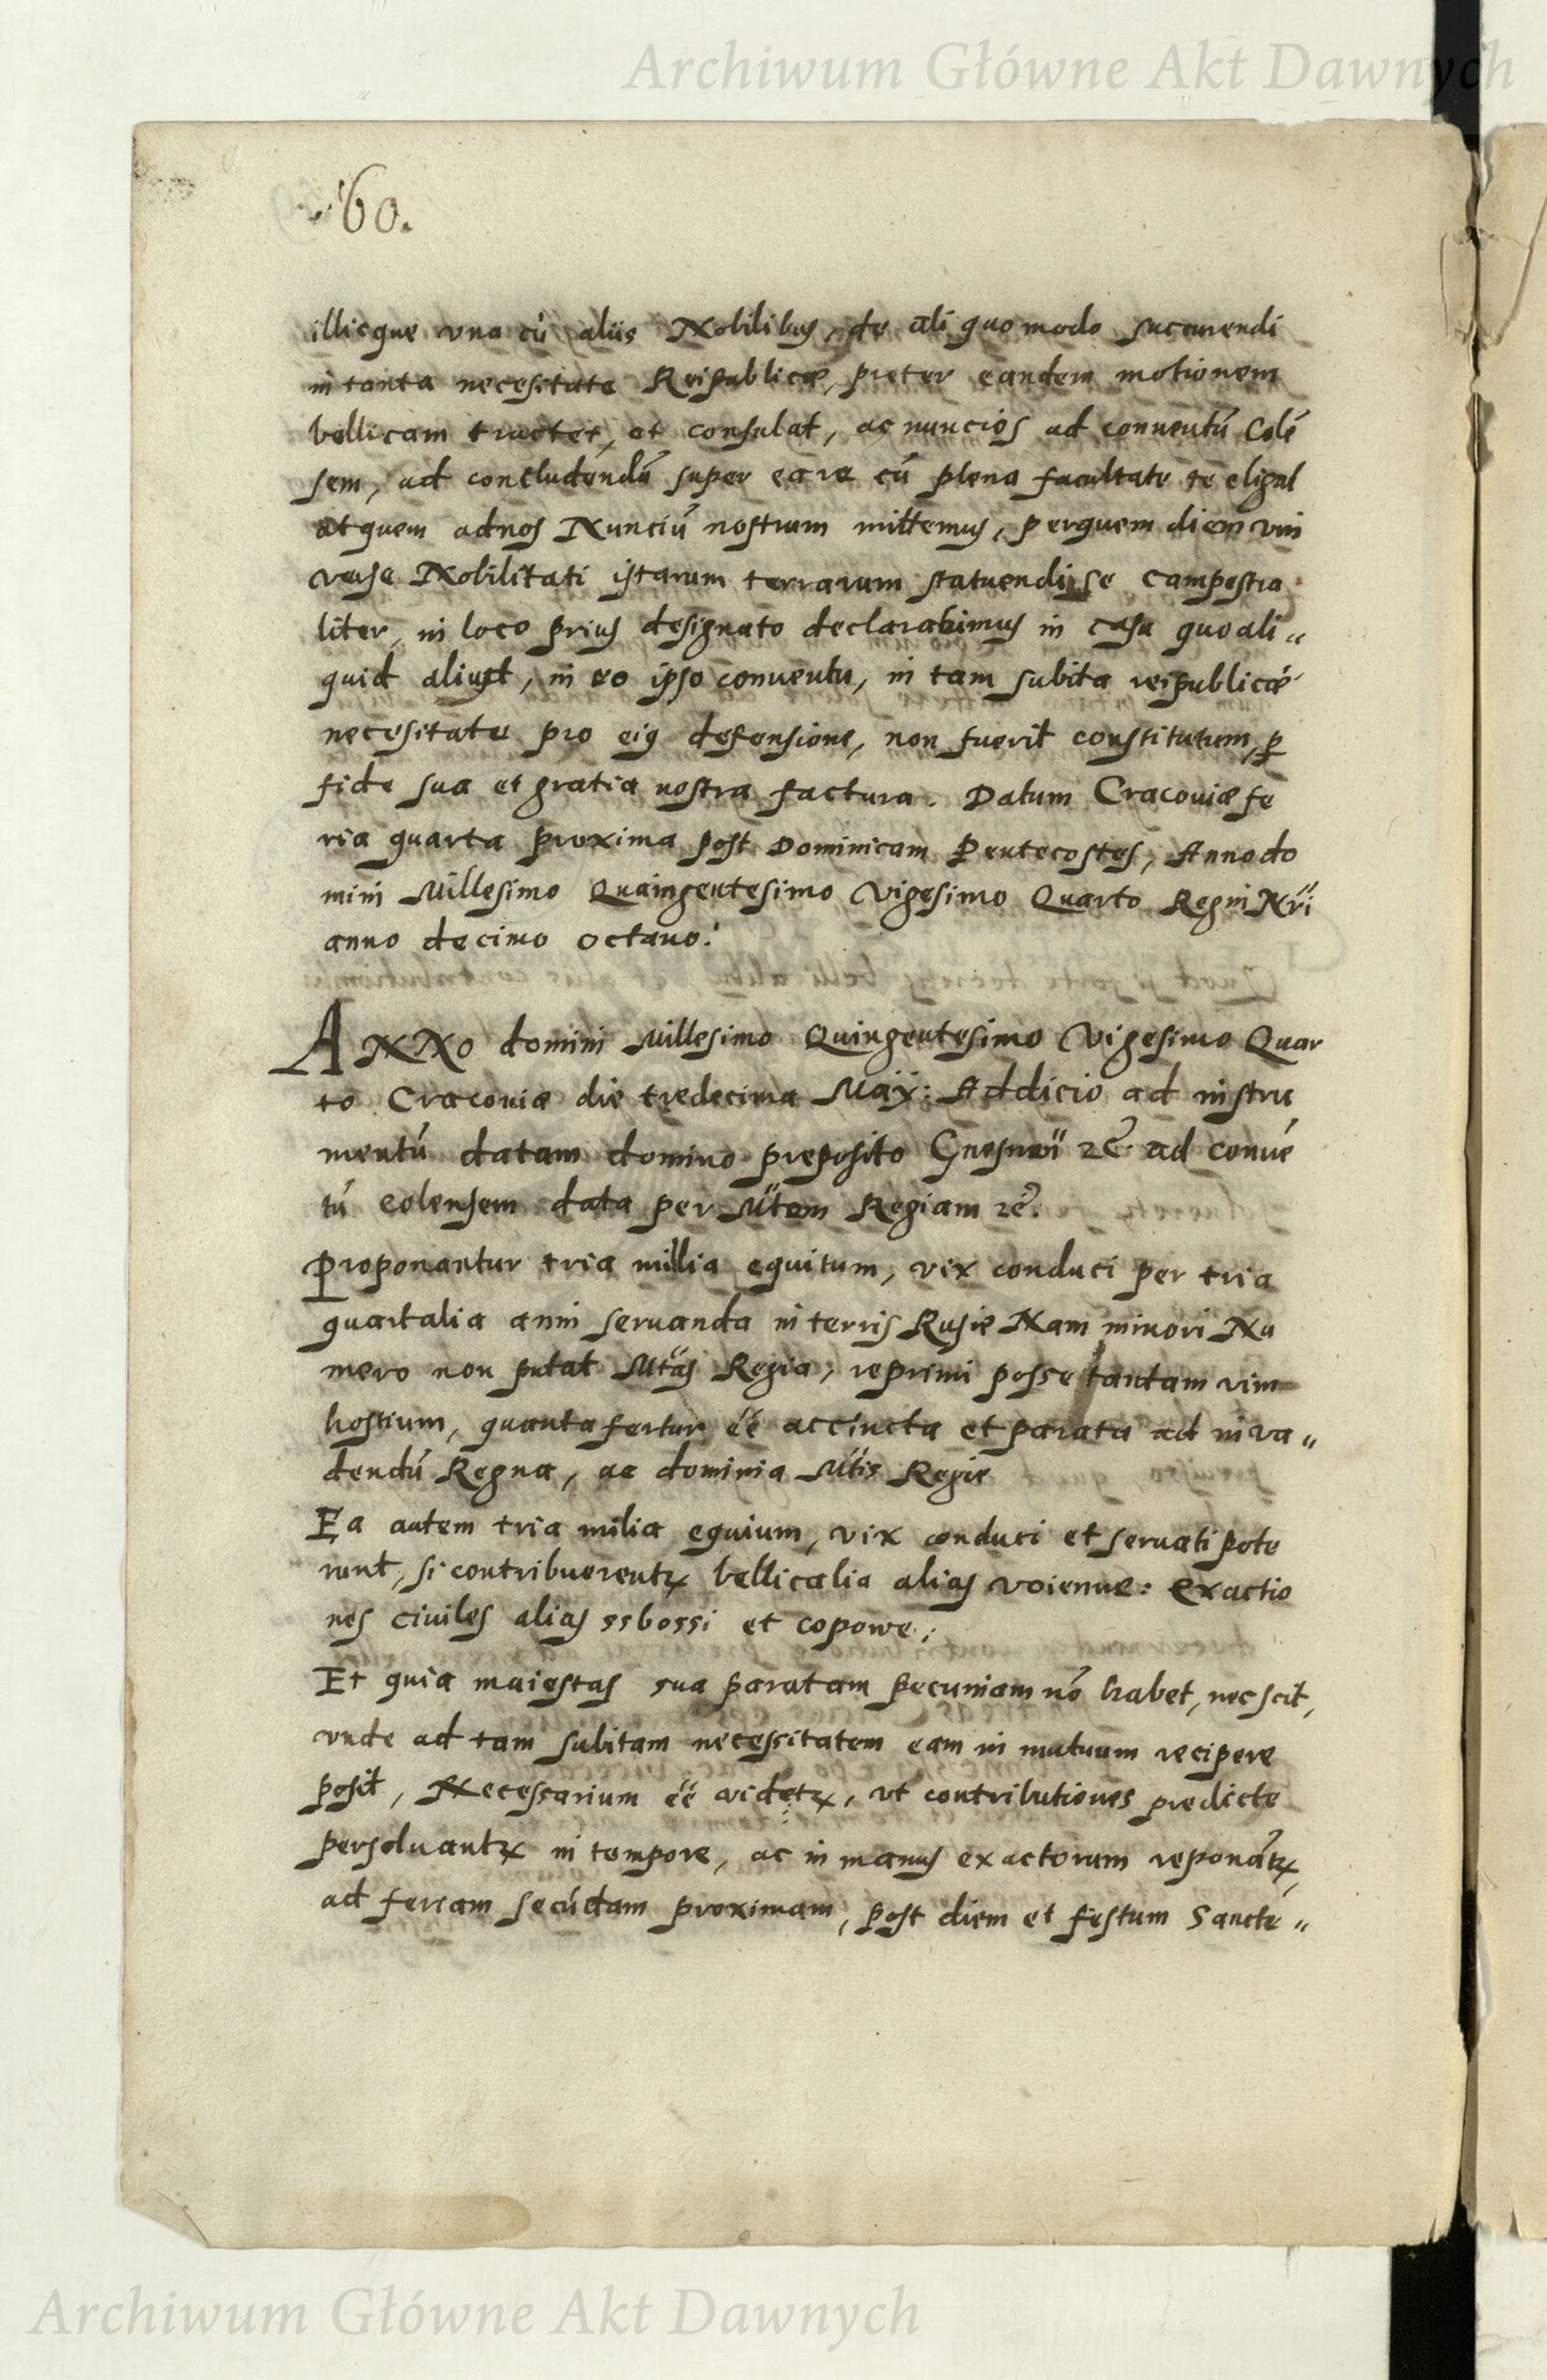 Archiwum Główne Akt Dawnych
60.
illicque vna cū aliis Nobilibus, de ali quo modo succurrendi
in tanta necesitate Reipublicæ, preter eandem motionem
bellicam tractet, et consulat, ac nuncios ad conuentū Colē
sem, ad concludendū super ea re cū plena facultate te eligat
atquem adnos Nunciū nostrum mittemus, perquem diem vni
verse Nobilitati istarum terrarum statuendi se campestra
liter, in loco prius designato declarabimus in casu quo ali„
quid aliud, in eo ipso conuentu, in tam subita reipublicæ
necesitate pro eig defensione, non fuerit constitutum, p
fide sua et gratia nostra factura. Datum Cracouiæ fe
ria quarta proxima post Dominicam Pentecostes, Anno do
mini Millesimo Quaingentesimo Vigesimo Quarto Regni Nri
anno decimo octauo.
ANNo domini Millesimo Quingentesimo Vigesimo Quar
to Cracouiæ die tredecima Maÿ: Addicio ad instru
mentū datam domino preposito zc̄ ad conuē
tū colensem data per Mtem Regiam zc̄.
Proponantur tria millia equitum, vix conduci per tria
quartalia anni seruanda in terris Rusie Nam minori Nu
mero non putat Mtas Regia, reprimi posse tantam vim
hostium, quanta fertur éé accincta et parata ad inua„
dendū Regna, ac dominia Mtis Regie
Ea autem tria milia equium, vix conduci et seruati pote
runt, si contribuerentꝝ bellicalia alias voienne: exactio
nes ciuiles alias ssbossi et copowe;
Et quia maiestas sua paratam pecuniam nō habet, nec scit,
vnde ad tam subitam necessitatem eam in mutuum recipere
posit, Necessarium éé videtꝝ, vt contributiones predicte
persoluantꝝ in tempore, ac in manus exactorum reponātꝝ,
ad feriam secūdam proximam, post diem et festum Sancte„
Archiwum Główne Akt Dawnych